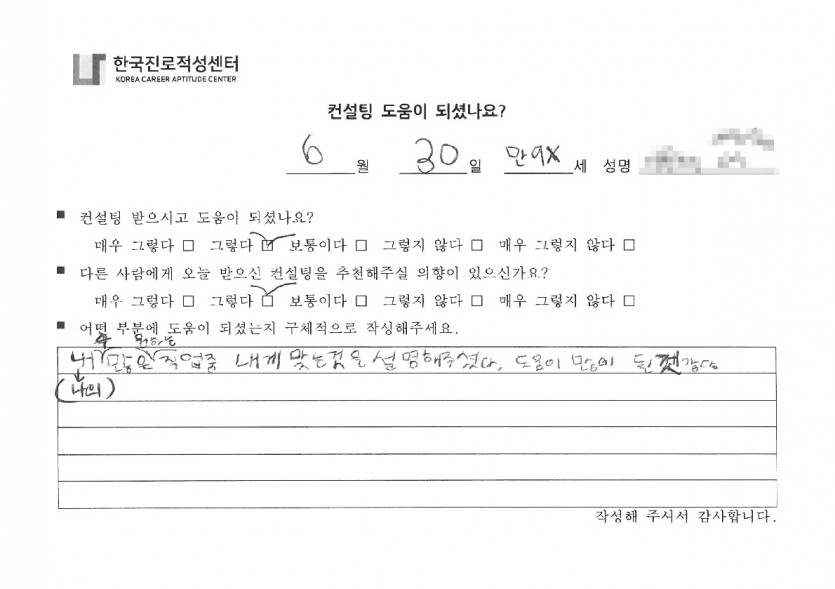 한국진로적성센터
KOREA CAREER APTITUDE CENTER
컨설팅 도움이 되셨나요?
6 월 30 일 만 9X 세 성명
■ 컨설팅 받으시고 도움이 되셨나요?
매우 그렇다 □ 그렇다 ☑ 보통이다 □ 그렇지 않다 □ 매우 그렇지 않다 □
■ 다른 사람에게 오늘 받으신 컨설팅을 추천해주실 의향이 있으신가요?
매우 그렇다 □ 그렇다 ☑ 보통이다 □ 그렇지 않다 □ 매우 그렇지 않다 □
■ 어떤 부분에 도움이 되셨는지 구체적으로 작성해주세요.
내 많은 직업중 내게 맞는것을 설명해주셨다. 도움이 많이 될 것 같다
(나의)
작성해 주셔서 감사합니다.